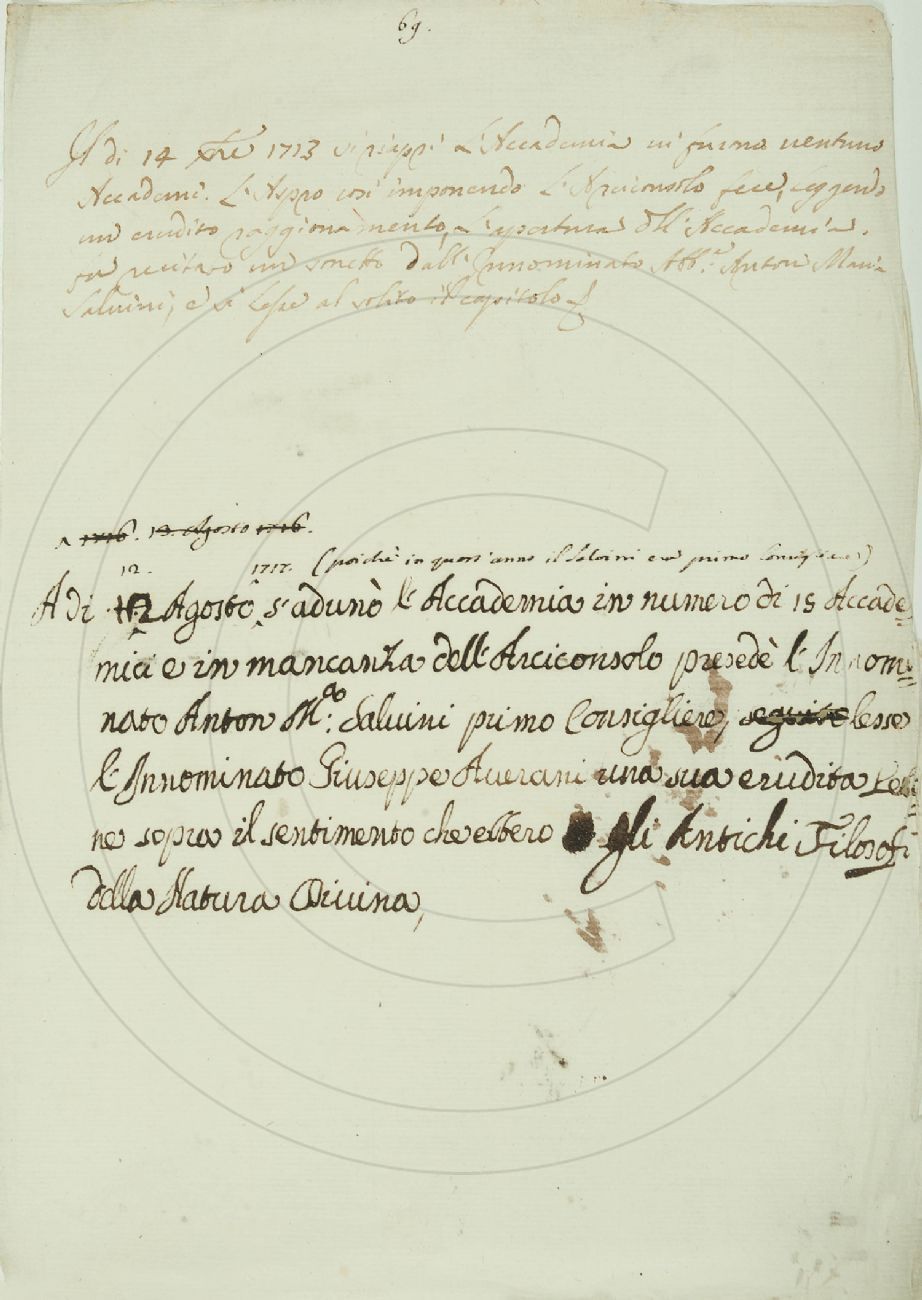 69.
A di 14 Xbre 1713 si riaprì l'Accademia vi furno ventuno
Accademi. L'Aspro così imponendo L'Arciconsolo fece, leggendo
un erudito raggionamento, l'apertura dell'Accademia.
fu recitato un sonetto dall'Innominato Abb.e Anton Maria
Salvini, e si lesse al solito il capitolo
A 1716. 13. Agosto 1716.
12. 1717. (poichè in quest'anno il Salvini era primo Consigliere)
A di 12 Agosto s'adunò l'Accademia in numero di 15 Accade=
mici e in mancanza dell'Arciconsolo presedè l'Innomi=
nato Anton M.a Salvini primo Consigliere, seguito lesse
l'Innominato Giuseppe Averani una sua erudita Lezi=
ne sopra il sentimento che ebbero gli Antichi Filosofi
della Natura Divina,